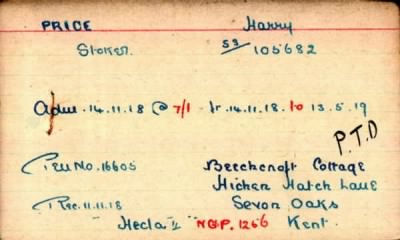 PRICE Harry
Stoker. SS/105682
Adm. 14.11.18 @ 7/1 fr. 14.11.18. to 13.5.19
P.T.D
Pen No. 16605 Beechcroft Cottage
Hichen Hatch Lane
Rec. 11.11.18 Sevon Oaks
"Hecla II" N.G.P. 1266 Kent.